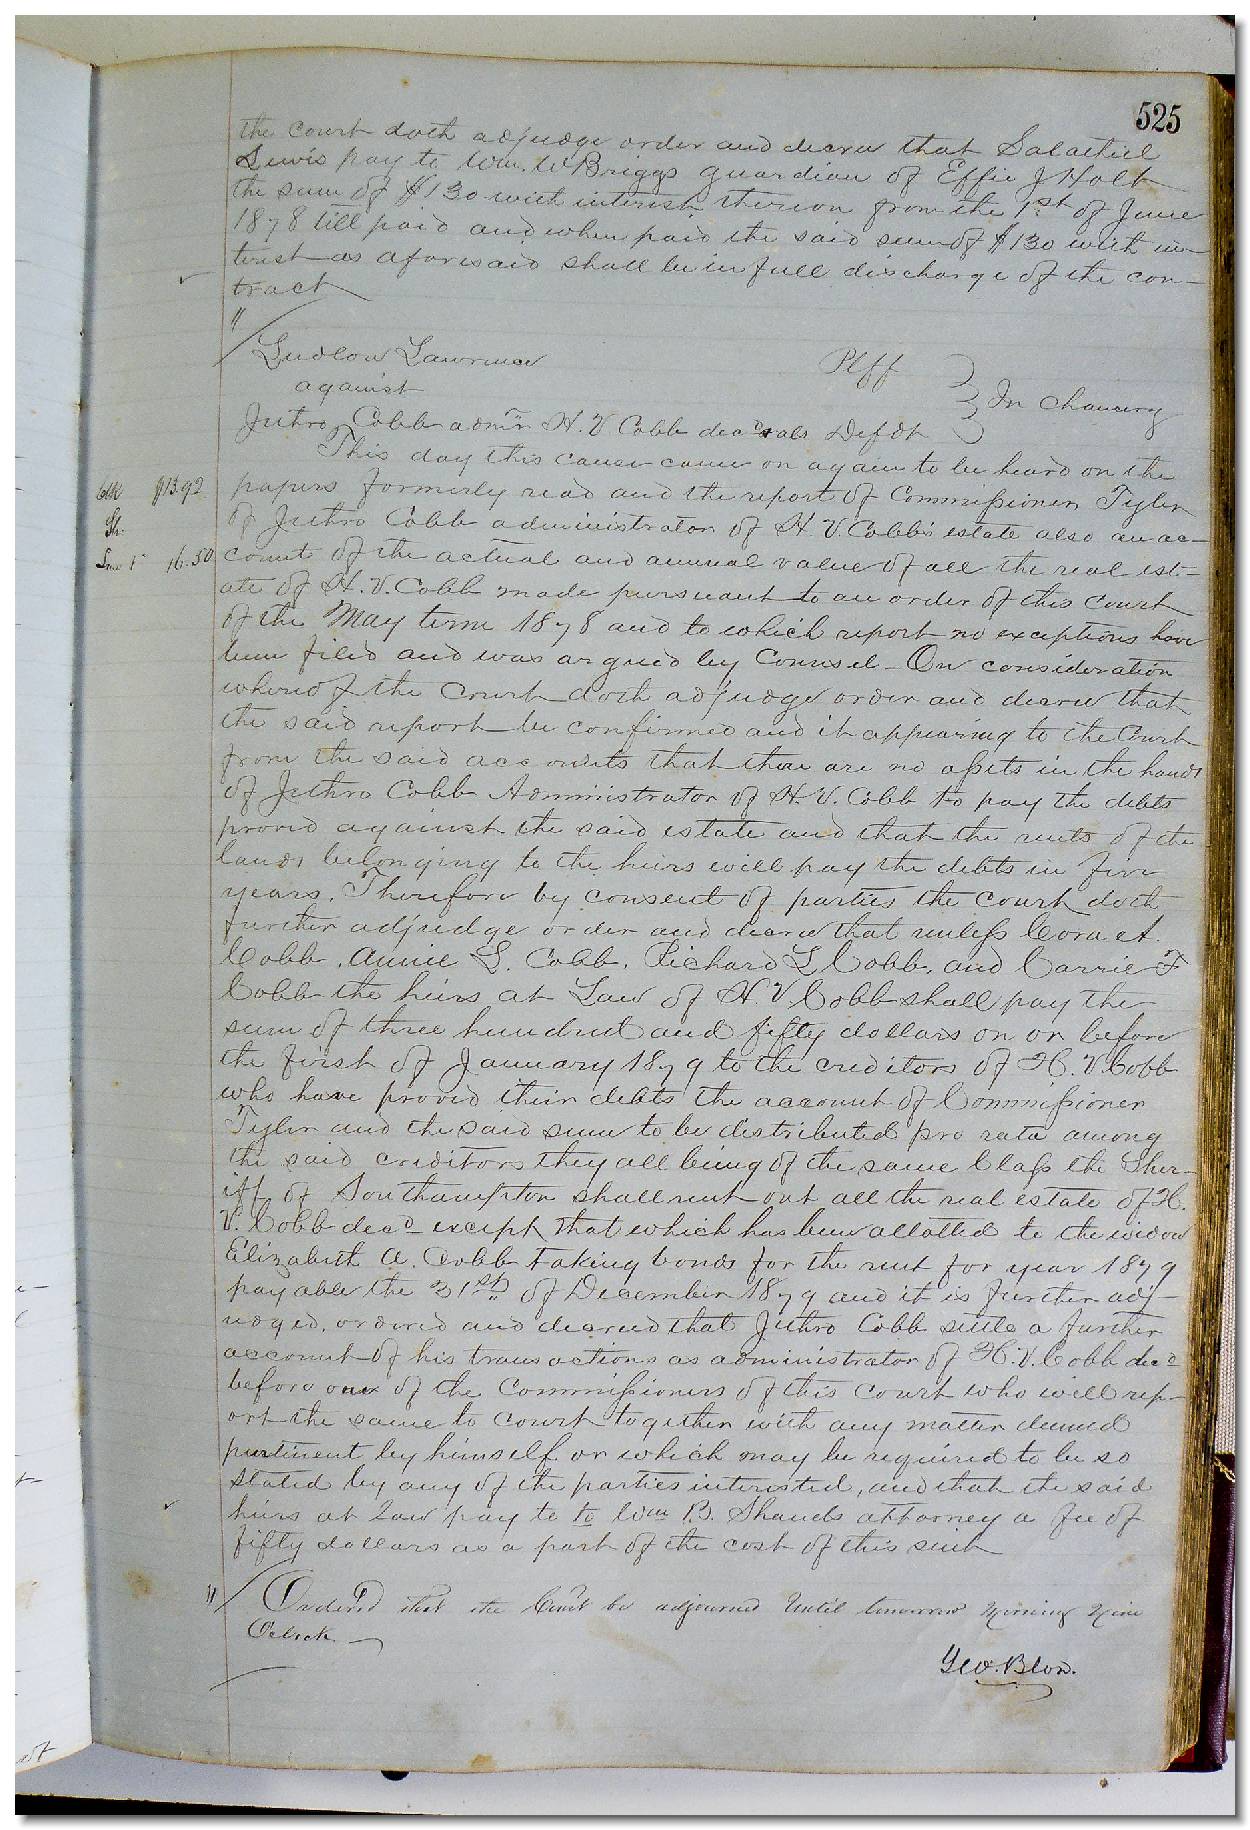 525
the court doth adjudge order and decree that Salathiel
Lewis pay to Wm. W Briggs guardian of Effie J Holt
the sum of $130 with interest thereon from the 1st of June
1878 till paid and when paid the said sum of $130 with in-
terest as aforesaid shall be in full discharge of the con-
tract
"
Ludlow Lawrence Plff
against
In Chancery
Jethro Cobb admr H. V Cobb decd & als Defdt
This day this cause came on again to be heard on the
Clk $13.92 papers formerly read and the report of Commissioner Tyler
Sh. of Jethro Cobb administrator of H. V. Cobb's estate also an ac-
16.50 count of the actual and annual value of all the real est-
ate of H. V. Cobb made pursuant to an order of this court
of the May term 1878 and to which report no exceptions have
been filed and was argued by Counsel - On consideration
whereof the Court doth adjudge order and decree that
the said report be confirmed and it appearing to the Court
from the said accounts that there are no assets in the hands
of Jethro Cobb Administrator of H. V. Cobb to pay the debts
proved against the said estate and that the rents of the
lands belonging to the heirs will pay the debts in five
years. Therefore by consent of parties the Court doth
further adjudge order and decree that unless Cora A.
Cobb, Annie L. Cobb, Richard L Cobb, and Carrie F
Cobb the heirs at Law of H. V Cobb shall pay the
sum of three hundred and fifty dollars on or before
the first of January 1879 to the creditors of H. V. Cobb
who have proved their debts the account of Commissioner
Tyler and the said sum to be distributed pro rata among
the said creditors they all being of the same Class the Sher-
iff of Southampton shall rent out all the real estate of H.
V. Cobb decd except that which has been allotted to the widow
Elizabeth A. Cobb taking bonds for the rent for year 1879
payable the 31st of December 1879 and it is further adj-
udged, ordered and decreed that Jethro Cobb settle a further
account of his transactions as administrator of H. V. Cobb decd
before one of the Commissioners of this Court who will rep-
ort the same to Court together with any matter deemed
pertinent by himself or which may be required to be so
stated by any of the parties interested, and that the said
heirs at Law pay to to Wm B. Shands attorney a fee of
fifty dollars as a part of the cost of this suit
" Ordered that the Court be adjourned Until tomorrow Morning Nine
Oclock
Geo. Blow.